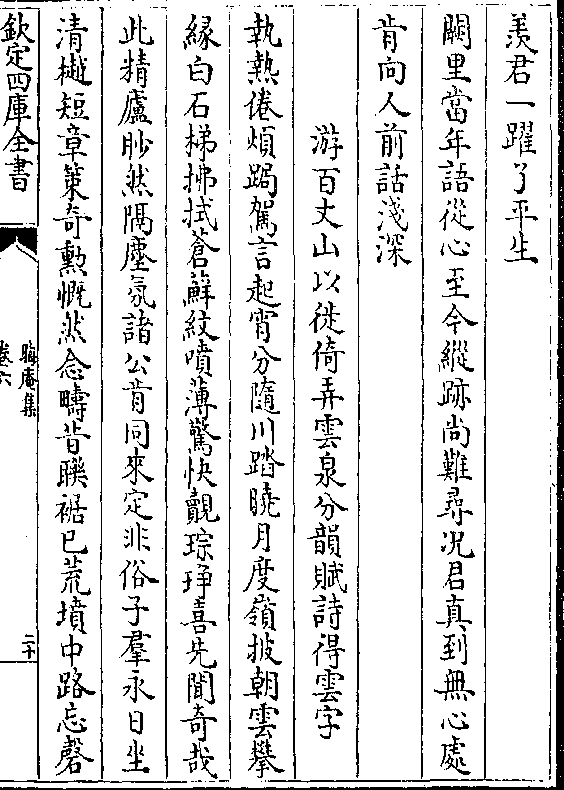 羨君一躍了平生
闕里當年語從心至今縱跡尚難尋況君真到無心處
肯向人前話淺深
游百丈山以徙倚弄雲泉分韻賦詩得雲字
執熱倦煩跼駕言起宵分隨川踏曉月度嶺披朝雲攀
緣白石梯拂拭蒼蘚紋噴薄驚快覿琮琤喜先聞奇哉
此精廬眇然隔塵氛諸公肯同來定非俗子羣永日坐
清樾短章策奇勲慨然念疇昔聯裾已荒墳中路忘罄
欽定四庫全書
晦庵集
卷六
二十